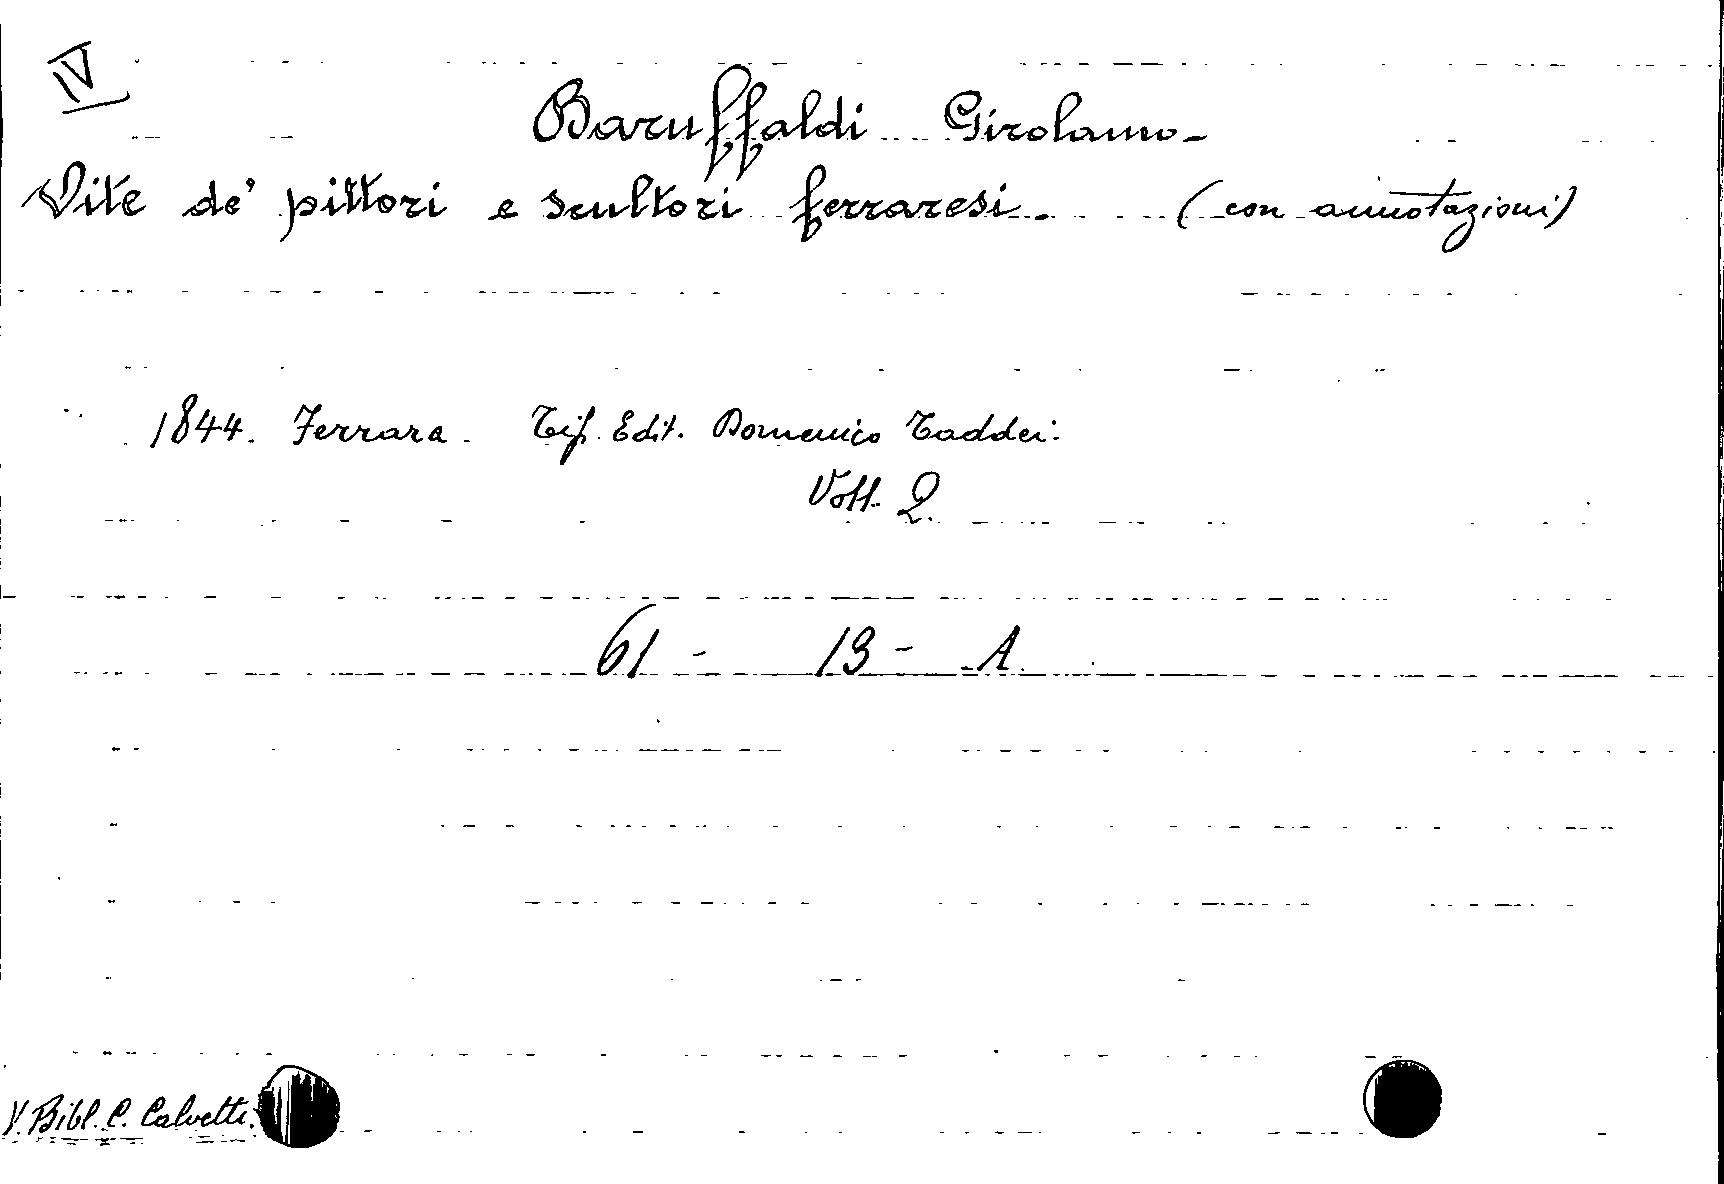 IV
Baruffaldi Girolamo-
Vite de' pittori e scultori ferraresi. (con annotazioni)
1844. Ferrara. Tip. Edit. Domenico Taddei.
Voll. 2.
61 - 13 - A.
V. Bibl. C. Calvetti.